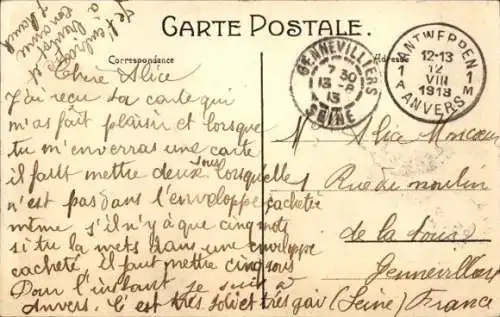 CARTE POSTALE.
Correspondance
Adresse
Je t'embrasse
à
Chère Alice
J'ai reçu ta carte qui
m'as fait plaisir et lorsque
tu m'enverras une carte
il fault mettre deux sous lorsquelle
n'est pas dans l'enveloppe cachetée
même s'il n'y à que cinq mots
si tu la mets dans une enveloppe
cacheté il faut mettre cinq sous
Pour l'instant je suis à
Anvers. C'est très joli et très gai
GENNEVILLIERS
7 30
13 -8
13
SEINE
ANTWERPEN
1 1
12-13
12
VIII
1913
A M
ANVERS
Alice
1 Rue du moulin
de la tour
Gennevilliers
(Seine) France